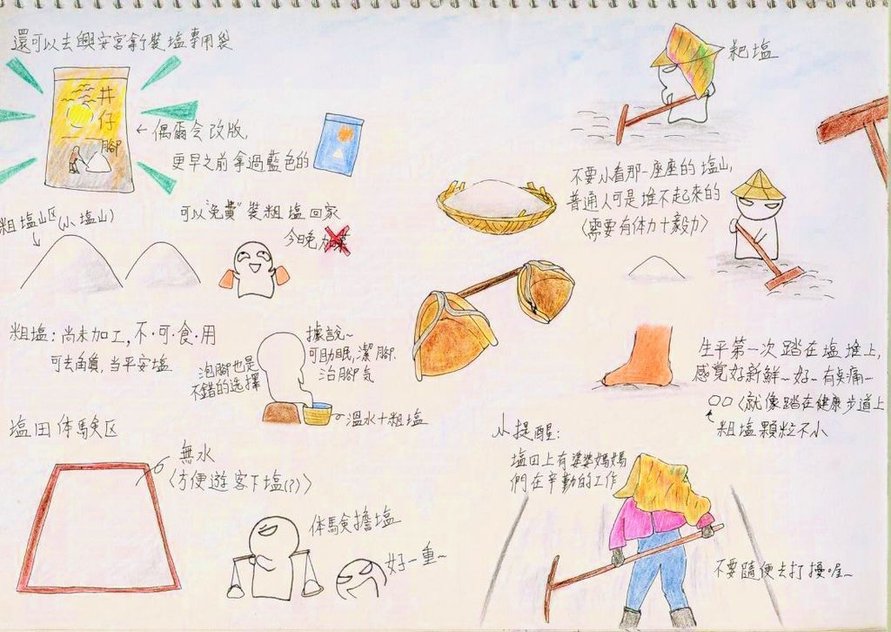 還可以去興安宮拿裝塩專用袋
井
仔
腳
←偶爾會改版
更早之前拿過藍色的
粗塩山区(小塩山)
可以"免費"裝粗塩回家
今晚加菜
粗塩:尚未加工,不·可·食·用
可去角質,当平安塩
泡腳也是
不錯的选擇
據說~
可助眠,潔腳
治腳氣
溫水十粗塩
塩田体驗区
無水
〈方便遊客下塩(?)〉
体驗擔塩
好一重~
耙塩
不要小看那一座座的塩山,
普通人可是堆不起來的
〈需要有体力十毅力〉
生平第一次踏在塩堆上,
感覚好新鮮~好~有矣痛~
○○〈就像踏在健康步道上
粗塩顆粒不小
小提醒:
塩田上有婆婆媽媽
們在辛勤的工作
不要隨便去打擾喔~